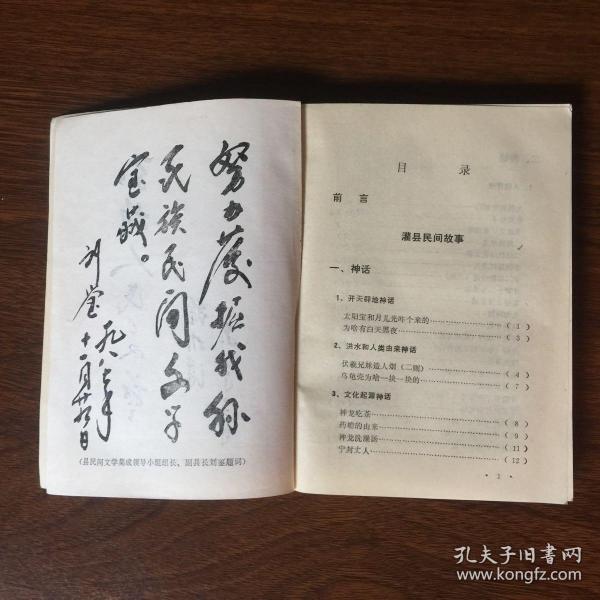 努力发掘我县
民族民间文学
宝藏。
刘
一九八七年
十一月廿九日
(县民间文学集成领导小组组长、副县长刘 题词)
目 录
前 言
灌县民间故事
一、神话
1、开天辟地神话
太阳宝和月儿光咋个来的………(1)
为啥有白天黑夜………(3)
2、洪水和人类由来神话
伏羲兄妹造人烟(二则)………(4)
乌龟壳为啥一块一块的………(7)
3、文化起源神话
神龙吃茶………(8)
的由来………(9)
神龙洗………(11)
宁封丈人………(12)
孔夫子旧书网
www.kongfz.com